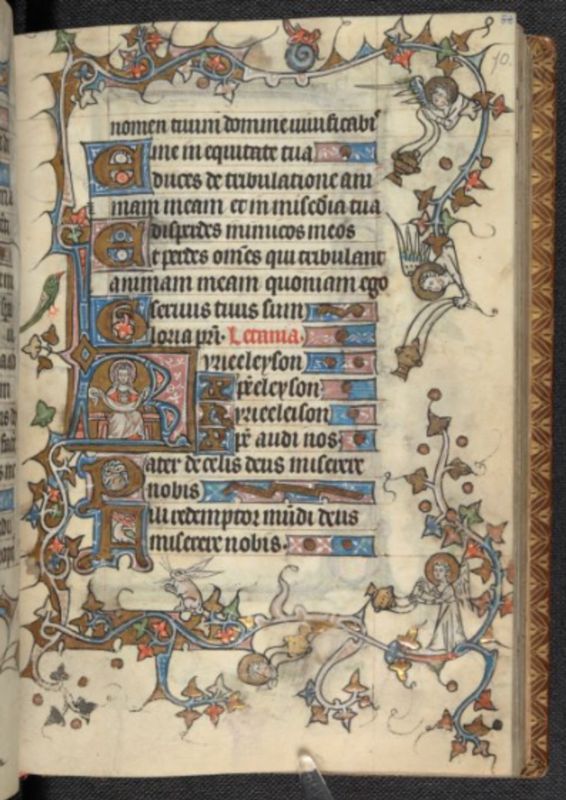 70.
nomen tuum domine uiuificabis
me in equitate tua
Educes de tribulatione ani
mam meam et in misc̄dia tua
disperdes inimicos meos
Et perdes om̄es qui tribulant
animam meam quoniam ego
seruus tuus sum
Gloria pr̄i. Letania.
Kyrieeleyson
Xp̄eeleyson
Kyrieeleison
Xp̄e audi nos
Pater de celis deus miserere
nobis
Fili redemptor mūdi deus
miserere nobis.